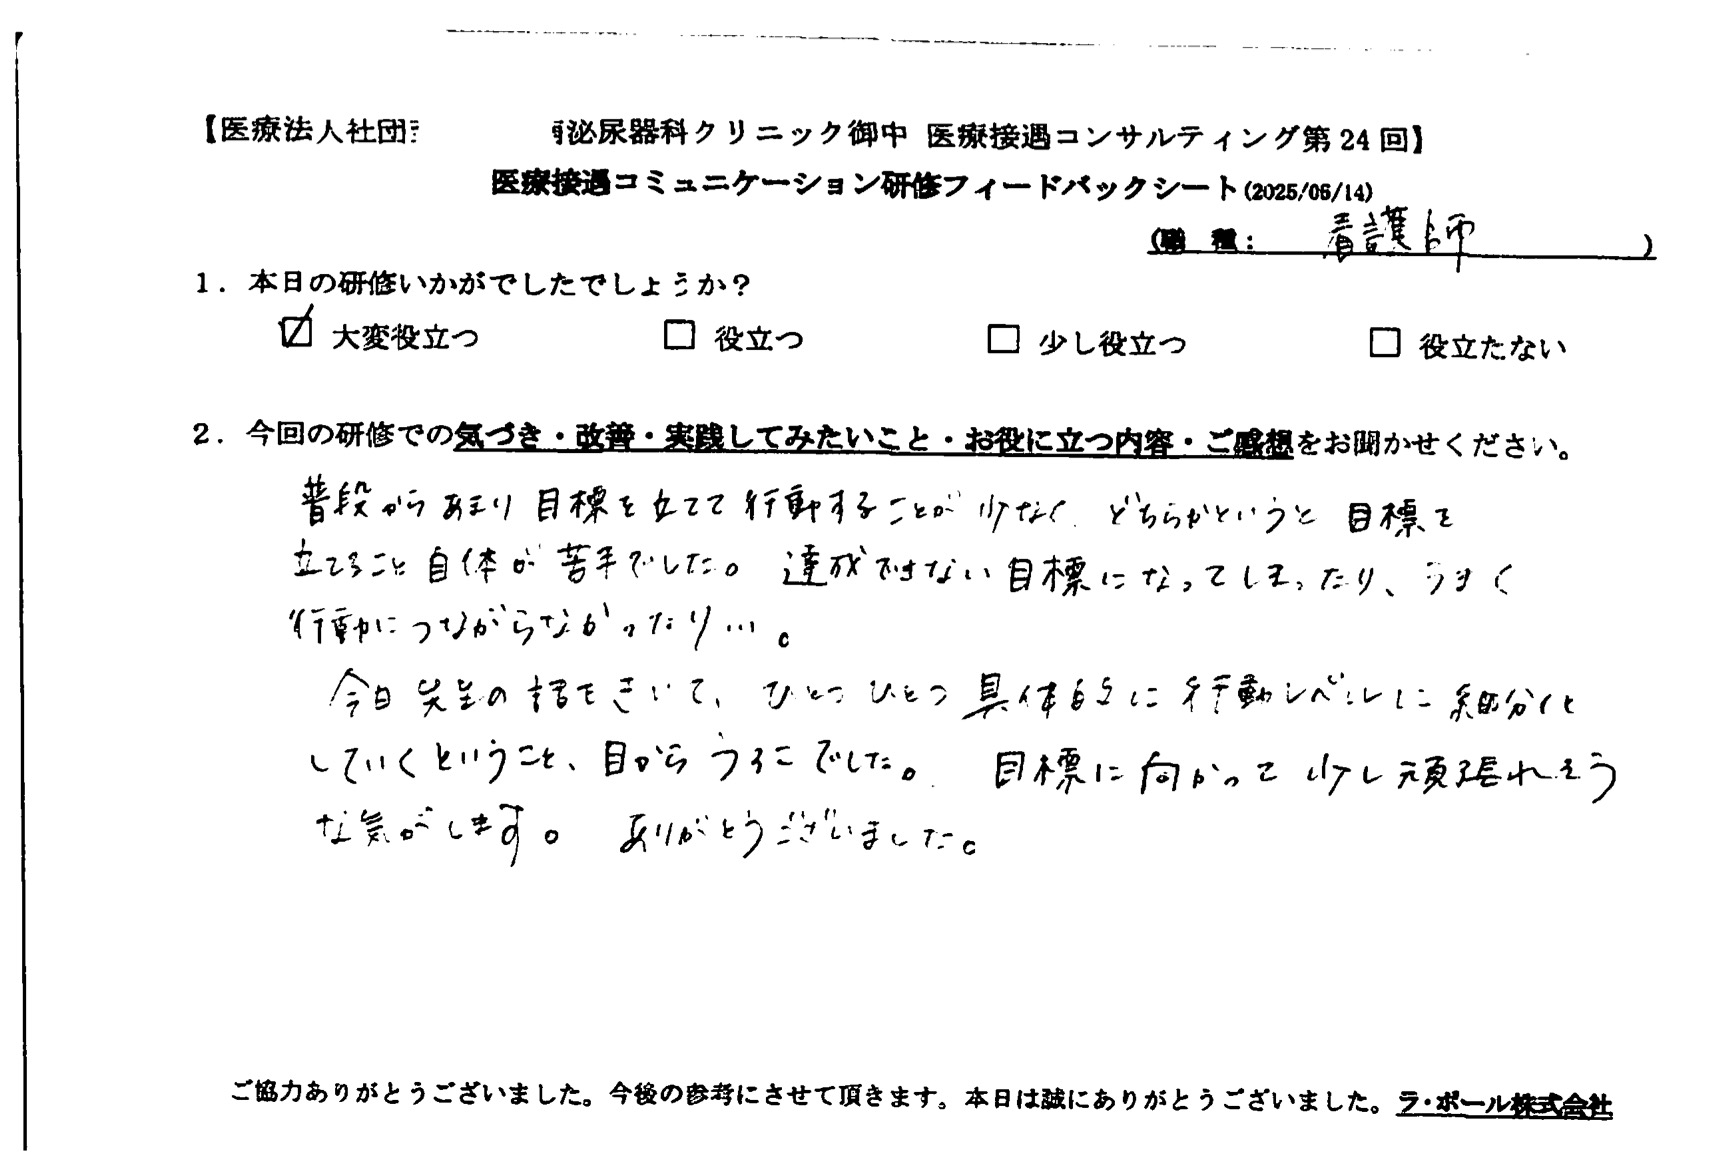 【医療法人社団 泌尿器科クリニック御中 医療接遇コンサルティング第24回】
医療接遇コミュニケーション研修フィードバックシート(2025/06/14)
(職 種: 看護師 )
1. 本日の研修いかがでしたでしょうか?
☑ 大変役立つ □ 役立つ □ 少し役立つ □ 役立たない
2. 今回の研修での気づき・改善・実践してみたいこと・お役に立つ内容・ご感想をお聞かせください。
普段からあまり目標を立てて行動することが少なく、どちらかというと目標を
立てること自体が苦手でした。達成できない目標になってしまったり、うまく
行動につながらなかったり…。
今日先生の話をきいて、ひとつひとつ具体的に行動レベルに細分化
していくということ、目からうろこでした。目標に向かって少し頑張れそう
な気がします。ありがとうございました。
ご協力ありがとうございました。今後の参考にさせて頂きます。本日は誠にありがとうございました。ラ・ポール株式会社